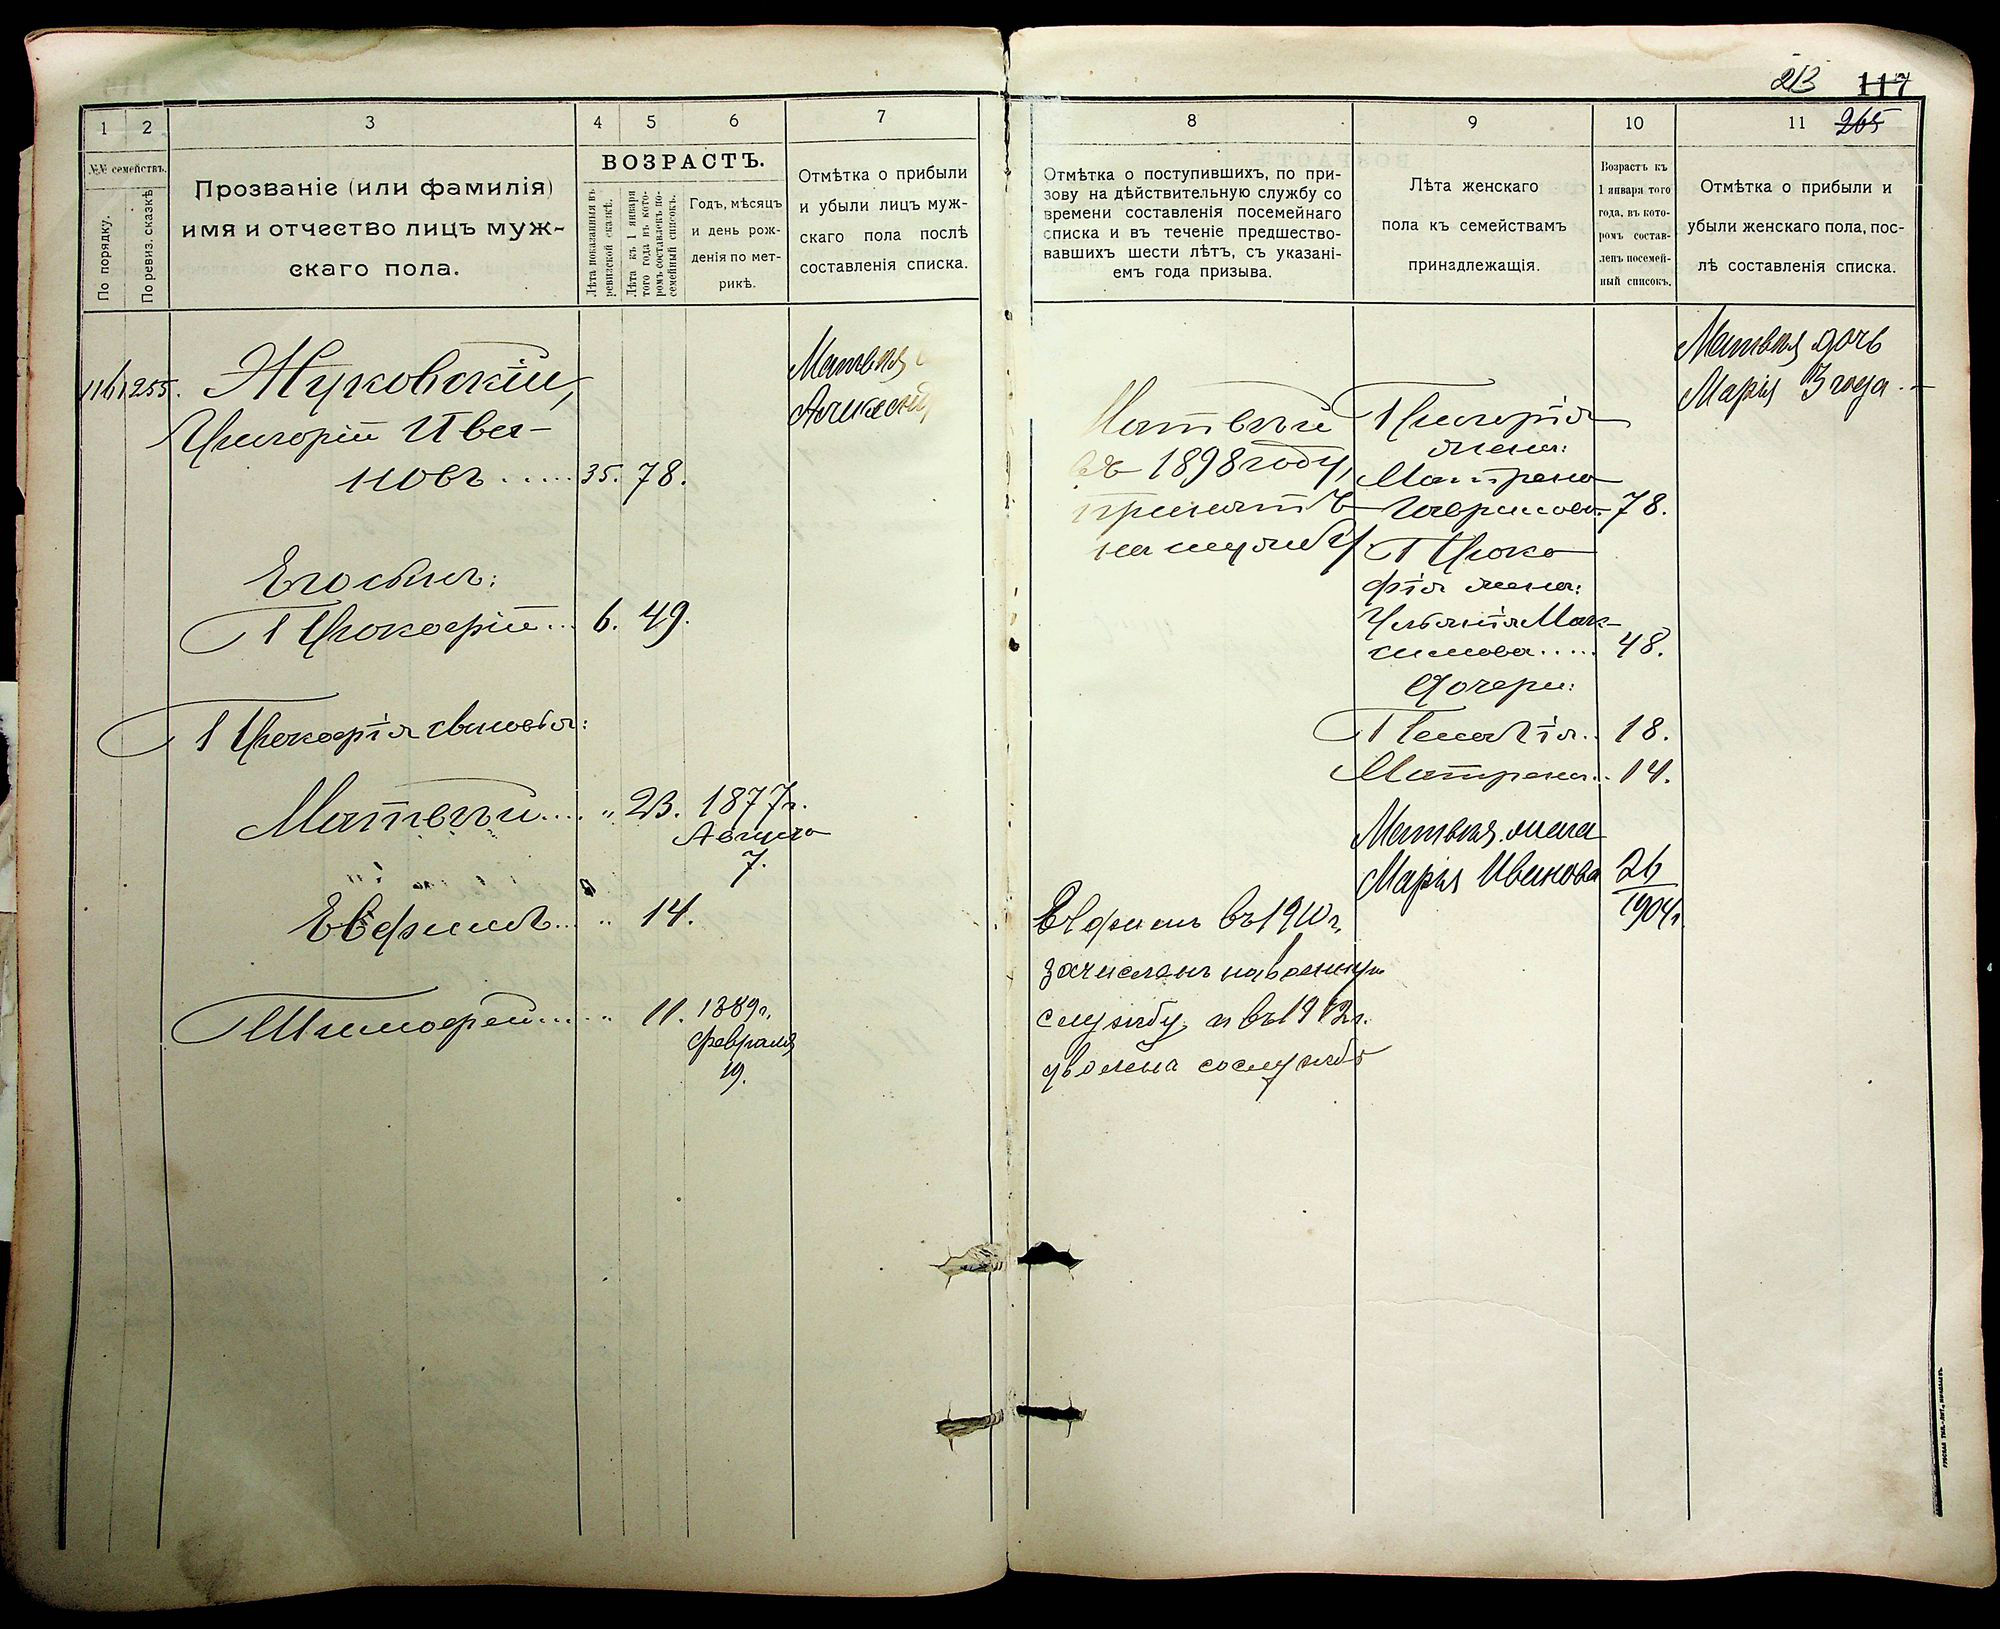 213 117
1 2 3 4 5 6 7
№№ семействъ.
По порядку.
По ревиз. сказкѣ
Прозваніе (или фамилія)
имя и отчество лицъ муж-
скаго пола.
ВОЗРАСТЪ.
Лѣта показанныя въ
ревизской сказкѣ.
Лѣта къ 1 января
того года въ кото-
ромъ составленъ по-
семейный списокъ.
Годъ, мѣсяцъ
и день рож-
денія по мет-
рикѣ.
Отмѣтка о прибыли
и убыли лицъ муж-
скаго пола послѣ
составленія списка.
116 255. Жуковскій,
Григорій Ива-
новъ ..... 35. 78.
Его сынъ:
Прокофій... 6. 49.
Прокофія сыновья:
Матвѣй.... " 23. 1877г.
Августа
7.
Евфимъ... " 14.
Тимофей..... " 11. 1889г.
Февраля
19.
Матвѣя
8 9 10 11 265
Отмѣтка о поступившихъ, по при-
зову на дѣйствительную службу со
времени составленія посемейнаго
списка и въ теченіе предшество-
вавшихъ шести лѣтъ, съ указані-
емъ года призыва.
Лѣта женскаго
пола къ семействамъ
принадлежащія.
Возрастъ къ
1 января того
года, въ кото-
ромъ состав-
ленъ посемей-
ный списокъ.
Отмѣтка о прибыли и
убыли женскаго пола, пос-
лѣ составленія списка.
Матвѣй
въ 1898 году,
принятъ
на службу
Евфимъ въ 1910 г.
зачисленъ на военную
службу и въ 1912 г.
уволена со службы
Григорія
жена:
Матрена
Гаврилова. 78.
Проко
фія жена:
Ульянія Мак-
симова..... 48.
Дочери:
Пелагія.. 18.
Матрена.. 14.
Матвѣя жена
Марья Иванова 26
1904г.
Матвѣя дочь
Марія 3 года